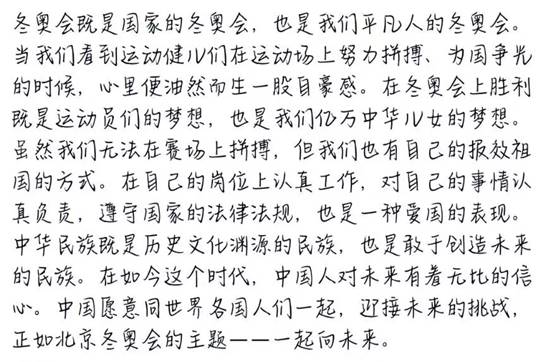 冬奥会既是国家的冬奥会，也是我们平凡人的冬奥会。
当我们看到运动健儿们在运动场上努力拼搏、为国争光
的时候，心里便油然而生一股自豪感。在冬奥会上胜利
既是运动员们的梦想，也是我们亿万中华儿女的梦想。
虽然我们无法在赛场上拼搏，但我们也有自己的报效祖
国的方式。在自己的岗位上认真工作，对自己的事情认
真负责，遵守国家的法律法规，也是一种爱国的表现。
中华民族既是历史文化渊源的民族，也是敢于创造未来
的民族。在如今这个时代，中国人对未来有着无比的信
心。中国愿意同世界各国人们一起，迎接未来的挑战，
正如北京冬奥会的主题——一起向未来。